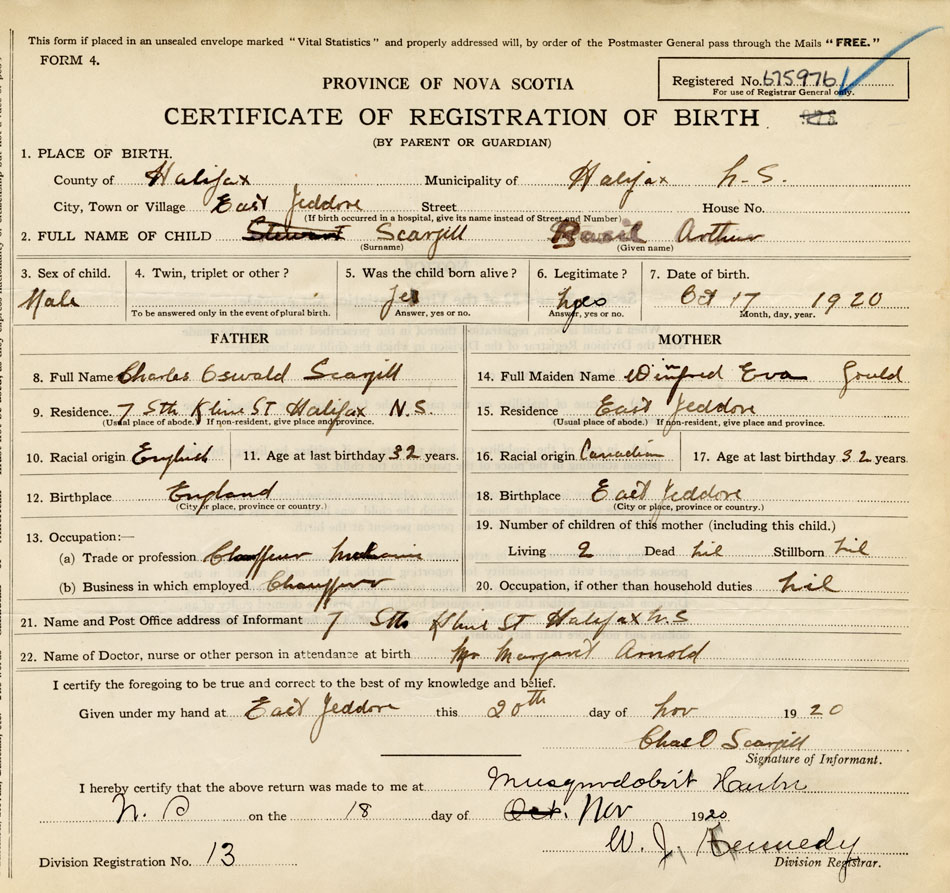 This form if placed in an unsealed envelope marked "Vital Statistics" and properly addressed will, by order of the Postmaster General pass through the Mails "FREE."
FORM 4.
Registered No. 675976
For use of Registrar General only.
PROVINCE OF NOVA SCOTIA
CERTIFICATE OF REGISTRATION OF BIRTH
(BY PARENT OR GUARDIAN)
1. PLACE OF BIRTH.
County of Halifax Municipality of Halifax N.S.
City, Town or Village East Jeddore Street House No.
(If birth occurred in a hospital, give its name instead of Street and Number)
2. FULL NAME OF CHILD Stewart Scargill Basil Arthur
(Surname) (Given name)
3. Sex of child. 4. Twin, triplet or other? 5. Was the child born alive? 6. Legitimate? 7. Date of birth.
Male Yes Yes Oct 17 1920
To be answered only in the event of plural birth. Answer, yes or no. Answer, yes or no. Month, day, year.
FATHER MOTHER
8. Full Name Charles Oswald Scargill 14. Full Maiden Name Winifred Eva Gould
9. Residence. 7 Sth Kline ST Halifax N.S. 15. Residence East Jeddore
(Usual place of abode.) If non-resident, give place and province. (Usual place of abode.) If non-resident, give place and province.
10. Racial origin English 11. Age at last birthday 32 years. 16. Racial origin Canadian 17. Age at last birthday 32 years.
12. Birthplace England 18. Birthplace East Jeddore
(City or place, province or country.) (City or place, province or country.)
13. Occupation:— 19. Number of children of this mother (including this child.)
(a) Trade or profession Chauffeur Living 2 Dead nil Stillborn nil
(b) Business in which employed Chauffeur 20. Occupation, if other than household duties nil
21. Name and Post Office address of Informant 7 Sth Kline ST Halifax N.S
22. Name of Doctor, nurse or other person in attendance at birth. Margaret Arnold
I certify the foregoing to be true and correct to the best of my knowledge and belief.
Given under my hand at East Jeddore this 20th day of Nov 1920
Chas O Scargill
Signature of Informant.
I hereby certify that the above return was made to me at Musquodoboit Harbor
N. S on the 18 day of Oct. Nov 1920
W. J. Kennedy
Division Registration No. 13 Division Registrar.